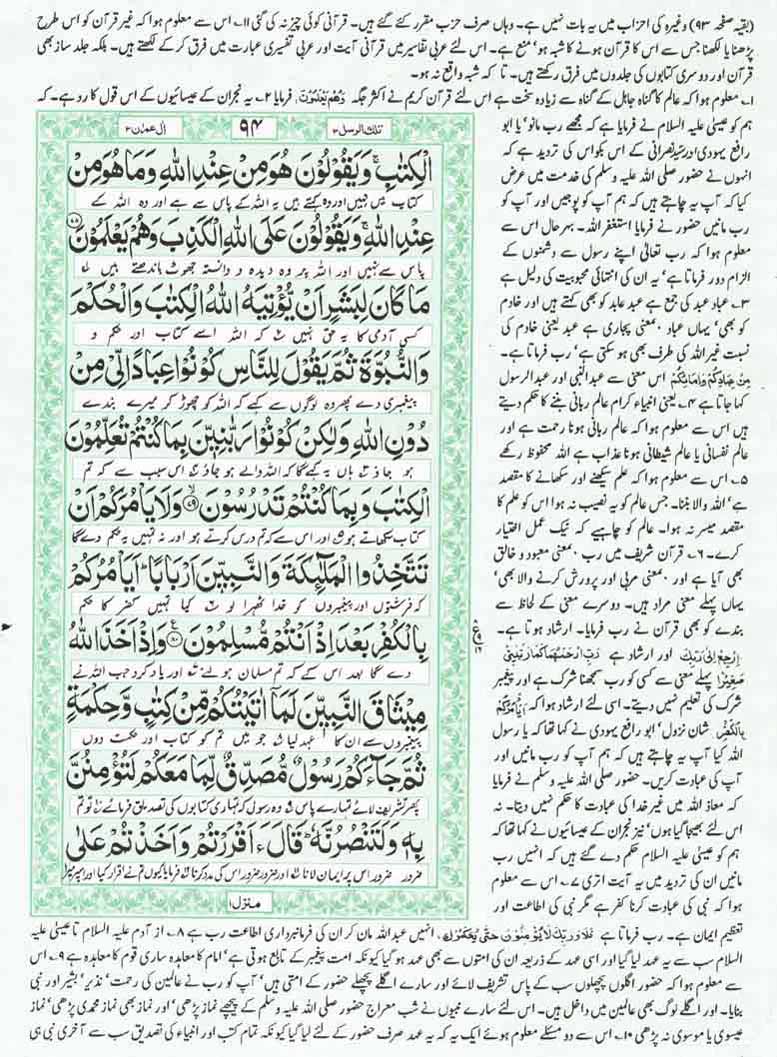 (بقیہ صفحہ ۹۳) وغیرہ کی احزاب میں یہ بات نہیں ہے۔ وہاں صرف حزب مقرر کئے گئے ہیں۔ قرآنی کوئی چیز نہ کی گئی ۱۱۔ اس سے معلوم ہوا کہ غیر قرآن کو اس طرح
پڑھنا یا لکھنا جس سے اس کا قرآن ہونے کا شبہ ہو' منع ہے۔ اس لئے عربی تفاسیر میں قرآنی آیت اور عربی تفسیری عبارت میں فرق کر کے لکھتے ہیں۔ بلکہ جلد ساز بھی
قرآن اور دوسری کتابوں کی جلدوں میں فرق رکھتے ہیں۔ تا کہ شبہ واقع نہ ہو۔
۱۔ معلوم ہوا کہ عالم کا گناہ جاہل کے گناہ سے زیادہ سخت ہے اس لئے قرآن کریم نے اکثر جگہ وَهُمْ يَعْلَمُوْنَ فرمایا ۲۔ یہ نجران کے عیسائیوں کے اس قول کا رد ہے۔ کہ
ہم کو عیسیٰ علیہ السلام نے فرمایا ہے کہ مجھے رب مانو' یا ابو
رافع یہودی اور سید نصرانی کے اس بکواس کی تردید ہے کہ
انہوں نے حضور صلی اللہ علیہ وسلم کی خدمت میں عرض
کیا کہ آپ یہ چاہتے ہیں کہ ہم آپ کو پوجیں اور آپ کو
رب مانیں حضور نے فرمایا استغفر اللہ۔ بہرحال اس سے
معلوم ہوا کہ رب تعالیٰ اپنے رسول سے دشمنوں کے
الزام دور فرماتا ہے' یہ ان کی انتہائی محبوبیت کی دلیل ہے
۳۔ عباد عبد کی جمع ہے عبد عابد کو بھی کہتے ہیں اور خادم
کو بھی' یہاں عباد بمعنی پجاری ہے عبد یعنی خادم کی
نسبت غیر اللہ کی طرف بھی ہو سکتی ہے' رب فرماتا ہے۔
مِنْ عِبَادِكُمْ وَاِمَائِكُمْ اس معنی سے عبد النبی اور عبد الرسول
کہا جاتا ہے ۴۔ یعنی انبیاء کرام عالم ربانی بننے کا حکم دیتے
ہیں اس سے معلوم ہوا کہ عالم ربانی ہونا رحمت ہے اور
عالم نفسانی یا عالم شیطانی ہونا عذاب ہے اللہ محفوظ رکھے
۵۔ اس سے معلوم ہوا کہ علم سیکھنے اور سکھانے کا مقصد
ہے' اللہ والا بننا۔ جس عالم کو یہ نصیب نہ ہوا اس کو علم کا
مقصد میسر نہ ہوا۔ عالم کو چاہیے کہ نیک عمل اختیار
کرے۔ ۶۔ قرآن شریف میں رب بمعنی معبود و خالق
بھی آیا ہے اور بمعنی مربی اور پرورش کرنے والا بھی'
یہاں پہلے معنی مراد ہیں۔ دوسرے معنی کے لحاظ سے
بندے کو بھی قرآن نے رب فرمایا۔ ارشاد ہوتا ہے۔
اِرْجِعْ اِلٰى رَبِّكَ اور ارشاد ہے رَبِّ ارْحَمْهُمَا كَمَا رَبَّيٰنِيْ
صَغِيْرًا پہلے معنی سے کسی کو رب سمجھنا شرک ہے اور پیغمبر
شرک کی تعلیم نہیں دیتے۔ اسی لئے ارشاد ہوا کہ اَيَاْمُرُكُمْ
بِالْكُفْرِ شان نزول' ابو رافع یہودی نے کہا تھا کہ یا رسول
اللہ کیا آپ یہ چاہتے ہیں کہ ہم آپ کو رب مانیں اور
آپ کی عبادت کریں۔ حضور صلی اللہ علیہ وسلم نے فرمایا
کہ معاذ اللہ میں غیر خدا کی عبادت کا حکم نہیں دیتا۔ نہ
اس لئے بھیجا گیا ہوں' نیز نجران کے عیسائیوں نے کہا تھا کہ
ہم کو عیسیٰ علیہ السلام حکم دے گئے ہیں کہ انہیں رب
مانیں ان کی تردید میں یہ آیت اتری ۷۔ اس سے معلوم
ہوا کہ نبی کی عبادت کرنا کفر ہے مگر نبی کی اطاعت اور
تلك الرسل ۳ ۹۴ اٰل عمران ۳
الْكِتٰبِ ۚ وَيَقُوْلُوْنَ هُوَ مِنْ عِنْدِ اللّٰهِ وَمَا هُوَ مِنْ
کتاب میں نہیں اور وہ کہتے ہیں یہ اللہ کے پاس سے ہے اور وہ اللہ کے
عِنْدِ اللّٰهِ ۚ وَيَقُوْلُوْنَ عَلَى اللّٰهِ الْكَذِبَ وَهُمْ يَعْلَمُوْنَ ۷۸
پاس سے نہیں اور اللہ پر وہ دیدہ و دانستہ جھوٹ باندھتے ہیں
مَا كَانَ لِبَشَرٍ اَنْ يُّؤْتِيَهُ اللّٰهُ الْكِتٰبَ وَالْحُكْمَ
کسی آدمی کا یہ حق نہیں کہ اللہ اسے کتاب اور حکم و
وَالنُّبُوَّةَ ثُمَّ يَقُوْلَ لِلنَّاسِ كُوْنُوْا عِبَادًا لِّيْ مِنْ
پیغمبری دے پھر وہ لوگوں سے کہے کہ اللہ کو چھوڑ کر میرے بندے
دُوْنِ اللّٰهِ وَلٰكِنْ كُوْنُوْا رَبّٰنِيّٖنَ بِمَا كُنْتُمْ تُعَلِّمُوْنَ
ہو جاؤ ہاں یہ کہے گا کہ اللہ والے ہو جاؤ اس سبب سے کہ تم
الْكِتٰبَ وَبِمَا كُنْتُمْ تَدْرُسُوْنَ ۷۹ وَلَا يَاْمُرَكُمْ اَنْ
کتاب سکھاتے ہو اور اس سے کہ تم درس کرتے ہو اور نہ تمہیں یہ حکم دے گا
تَتَّخِذُوا الْمَلٰٓئِكَةَ وَالنَّبِيّٖنَ اَرْبَابًا ؕ اَيَاْمُرُكُمْ
کہ فرشتوں اور پیغمبروں کو خدا ٹھہرا لو کیا تمہیں کفر کا حکم
بِالْكُفْرِ بَعْدَ اِذْ اَنْتُمْ مُّسْلِمُوْنَ ۸۰ وَاِذْ اَخَذَ اللّٰهُ
دے گا بعد اس کے کہ تم مسلمان ہو لئے اور یاد کرو جب اللہ نے
مِيْثَاقَ النَّبِيّٖنَ لَمَاۤ اٰتَيْتُكُمْ مِّنْ كِتٰبٍ وَّحِكْمَةٍ
پیغمبروں سے ان کا عہد لیا جو میں تم کو کتاب اور حکمت دوں
ثُمَّ جَآءَكُمْ رَسُوْلٌ مُّصَدِّقٌ لِّمَا مَعَكُمْ لَتُؤْمِنُنَّ
پھر تشریف لائے تمہارے پاس وہ رسول کہ تمہاری کتابوں کی تصدیق فرمائے تو تم
بِهٖ وَلَتَنْصُرُنَّهٗ ؕ قَالَ ءَاَقْرَرْتُمْ وَاَخَذْتُمْ عَلٰى
ضرور ضرور اس پر ایمان لانا اور ضرور ضرور اس کی مدد کرنا فرمایا کیوں تم نے اقرار کیا اور اس پر میرا
منزل ۱
تعظیم ایمان ہے۔ رب فرماتا ہے فَلَا وَرَبِّكَ لَا يُؤْمِنُوْنَ حَتّٰى يُحَكِّمُوْكَ، انہیں عبداللہ مان کر ان کی فرمانبرداری اطاعت رب ہے ۸۔ از آدم علیہ السلام تا عیسیٰ علیہ
السلام سب سے یہ عہد لیا گیا اور اسی عہد کے ذریعہ ان کی امتوں سے بھی عہد ہو گیا کیونکہ امت پیغمبر کے تابع ہوتی ہے' امام کا معاہدہ ساری قوم کا معاہدہ ہے ۹۔ اس
سے معلوم ہوا کہ حضور اگلوں پچھلوں سب کے پاس تشریف لائے اور سارے اگلے پچھلے حضور کے امتی ہیں' آپ کو رب نے عالمین کی رحمت' نذیر' بشیر اور نبی
بنایا۔ اور اگلے لوگ بھی عالمین میں داخل ہیں۔ اس لئے سارے نبیوں نے شب معراج حضور صلی اللہ علیہ وسلم کے پیچھے نماز پڑھی' اور نماز بھی نماز محمدی پڑھی' نماز
عیسوی یا موسوی نہ پڑھی ۱۰۔ اس سے دو مسئلے معلوم ہوئے ایک یہ کہ یہ عہد صرف حضور کے لئے لیا گیا کیونکہ تمام کتب اور انبیاء کی تصدیق سب سے آخری نبی ہی